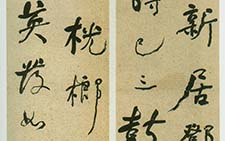 新居鄰
時已三鼓
桄榔
英發如